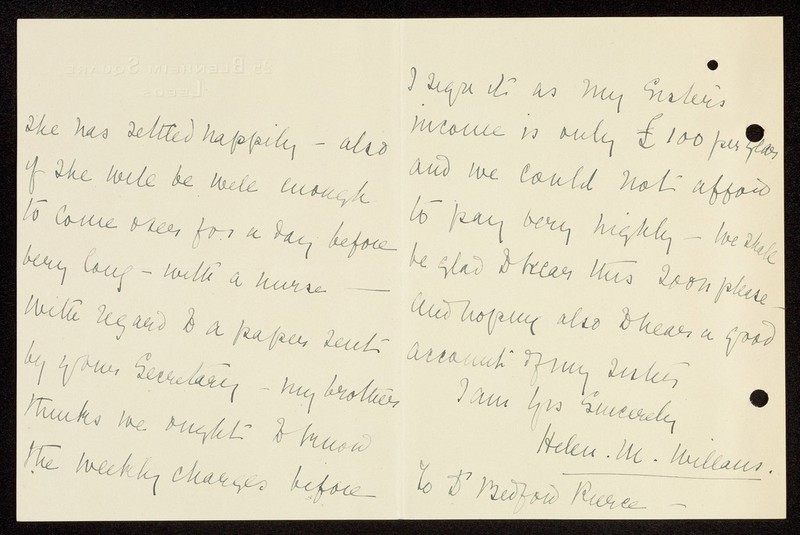 she has settled happily – also
if she will be well enough
to come over for a day before
very long – with a nurse –
With regard to a paper sent
by your Secretary – my brother
thinks we ought to know
the weekly charges before
I sign it as my Sister's
income is only £100 per year
and we could not afford
to pay very highly – We shall
be glad to hear this soon please –
And hoping also to hear a good
account of my sister
I am yrs Sincerely
Helen. M. Willans.
To Dr Bedford Pierce –
11 BLENHEIM SQUARE
LEEDS